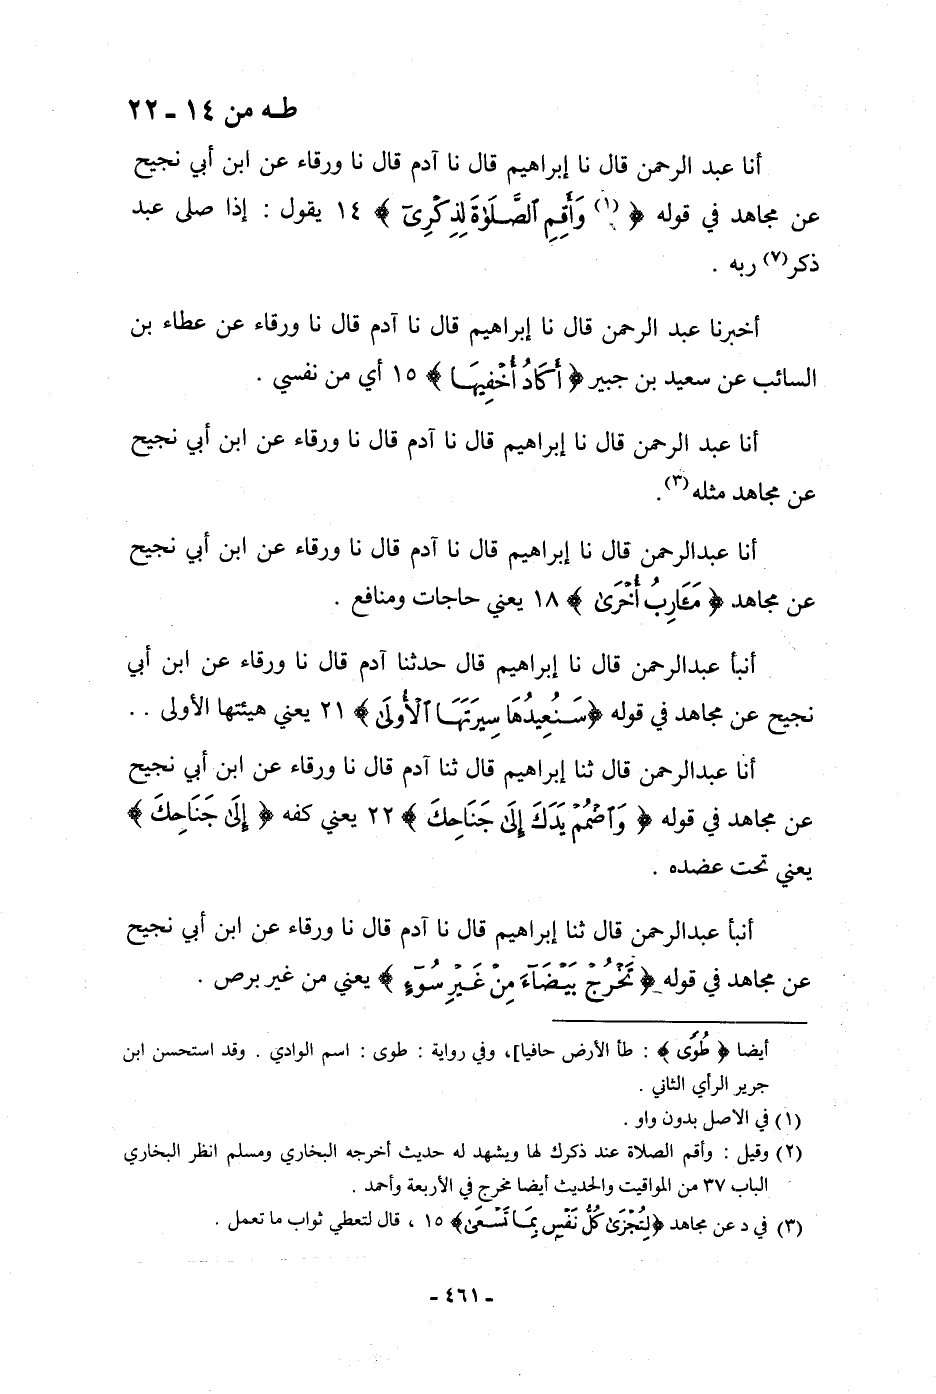 طـه من ١٤ ـ ٢٢
أنا عبد الرحمن قال نا إبراهيم قال نا آدم قال نا ورقاء عن ابن أبي نجيح
عن مجاهد في قوله ﴿ (١) وَأَقِمِ ٱلصَّلَوٰةَ لِذِكْرِىٓ ﴾ ١٤ يقول : إذا صلى عبد
ذكر(٧) ربه .
أخبرنا عبد الرحمن قال نا إبراهيم قال نا آدم قال نا ورقاء عن عطاء بن
السائب عن سعيد بن جبير ﴿ أَكَادُ أُخْفِيهَا ﴾ ١٥ أي من نفسي .
أنا عبد الرحمن قال نا إبراهيم قال نا آدم قال نا ورقاء عن ابن أبي نجيح
عن مجاهد مثله(٣).
أنا عبدالرحمن قال نا إبراهيم قال نا آدم قال نا ورقاء عن ابن أبي نجيح
عن مجاهد ﴿ مَـَٔارِبُ أُخْرَىٰ ﴾ ١٨ يعني حاجات ومنافع .
أنبأ عبدالرحمن قال نا إبراهيم قال حدثنا آدم قال نا ورقاء عن ابن أبي
نجيح عن مجاهد في قوله ﴿سَنُعِيدُهَا سِيرَتَهَا ٱلْأُولَىٰ ﴾ ٢١ يعني هيئتها الأولى . .
أنا عبدالرحمن قال ثنا إبراهيم قال ثنا آدم قال نا ورقاء عن ابن أبي نجيح
عن مجاهد في قوله ﴿ وَٱضْمُمْ يَدَكَ إِلَىٰ جَنَاحِكَ ﴾ ٢٢ يعني كفه ﴿ إِلَىٰ جَنَاحِكَ ﴾
يعني تحت عضده .
أنبأ عبدالرحمن قال ثنا إبراهيم قال نا آدم قال نا ورقاء عن ابن أبي نجيح
عن مجاهد في قوله ﴿ تَخْرُجْ بَيْضَآءَ مِنْ غَيْرِ سُوٓءٍ ﴾ يعني من غير برص .
أيضا ﴿ طُوًى ﴾ : طأ الأرض حافيا]، وفي رواية : طوى : اسم الوادي . وقد استحسن ابن
جرير الرأي الثاني .
(١) في الاصل بدون واو .
(٢) وقيل : وأقم الصلاة عند ذكرك لها ويشهد له حديث أخرجه البخاري ومسلم انظر البخاري
الباب ٣٧ من المواقيت والحديث أيضا مخرج في الأربعة وأحمد .
(٣) في د عن مجاهد ﴿لِتُجْزَىٰ كُلُّ نَفْسٍ بِمَا تَسْعَىٰ﴾ ١٥ ، قال لتعطي ثواب ما تعمل .
ـ ٤٦١ ـ